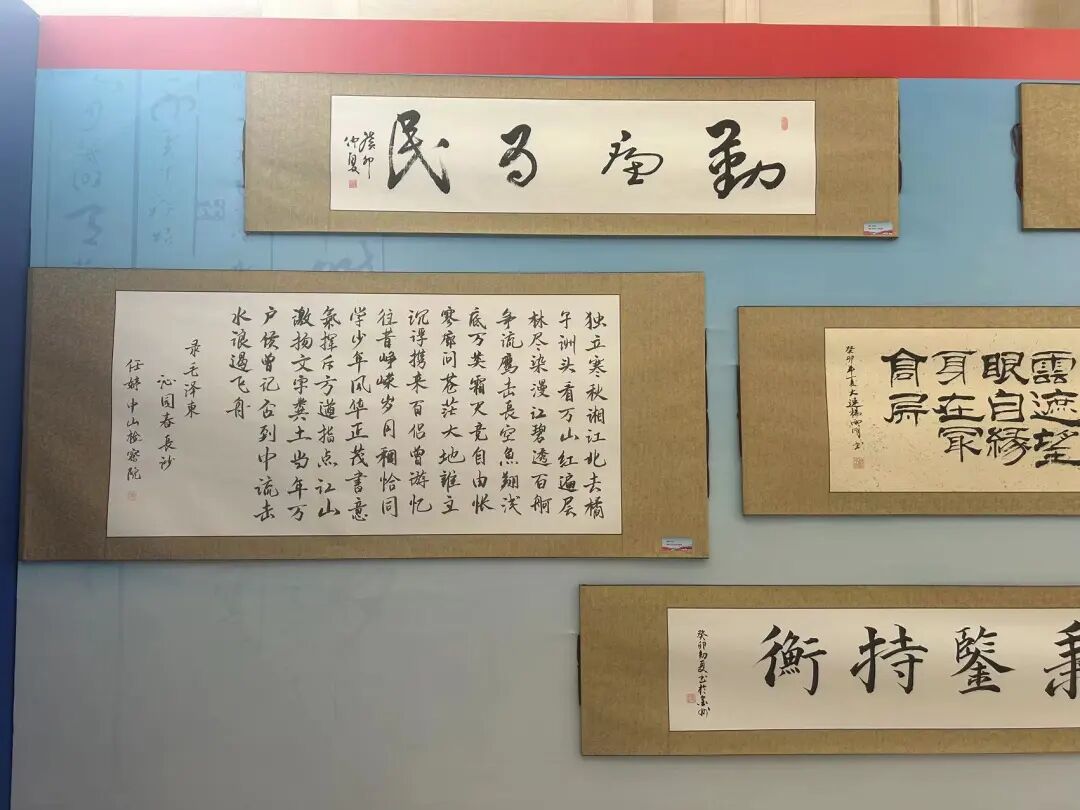 勤廉为民
癸卯
仲夏
独立寒秋湘江北去橘
子洲头看万山红遍层
林尽染漫江碧透百舸
争流鹰击長空魚翔浅
底万类霜天竞自由怅
寥廓问苍茫大地誰主
沉浮携来百侣曾游忆
往昔峥嵘岁月稠恰同
学少年风华正茂書意
氣挥斥方遒指点江山
激扬文字粪土当年万
户侯曾记否到中流击
水浪遏飞舟
录毛泽東
沁园春長沙
任婷中山检察院
雲遮望
眼自缘
身在最
高层
鑒持衡
癸卯初夏书于金州